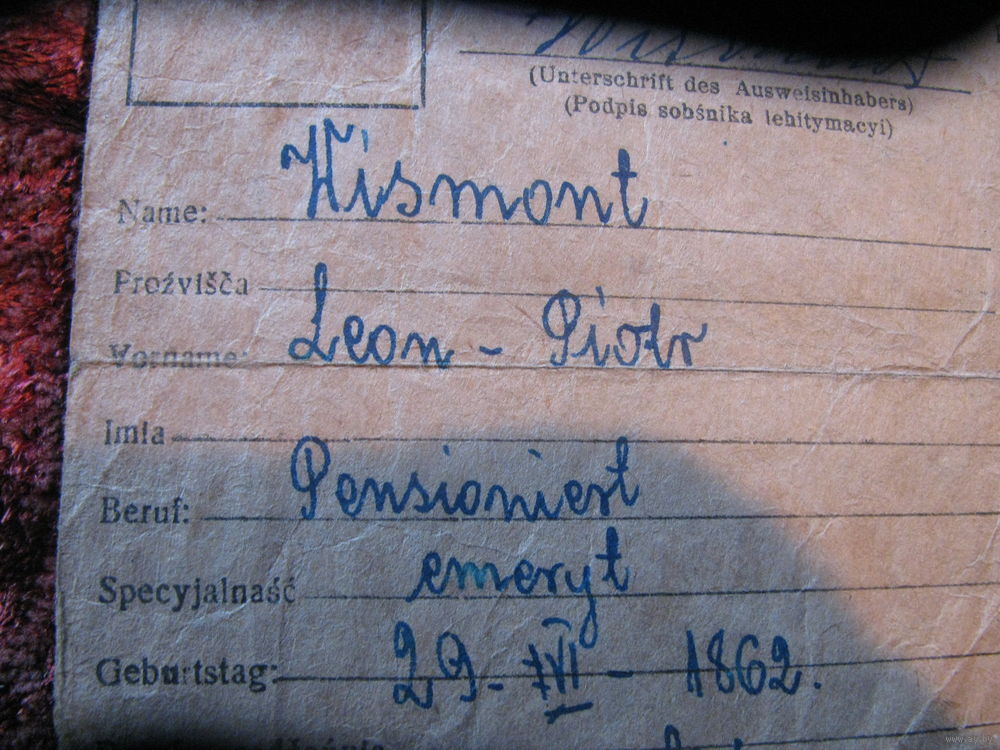 (Unterschrift des Ausweisinhabers)
(Podpis sobśnika lehitymacyi)
Name: Wismont
Proźvišča
Vorname: Leon - Piotr
Imia
Beruf: Pensioniert
Specyjalnaść emeryt
Geburtstag: 29. VII - 1862.
www.ay.by